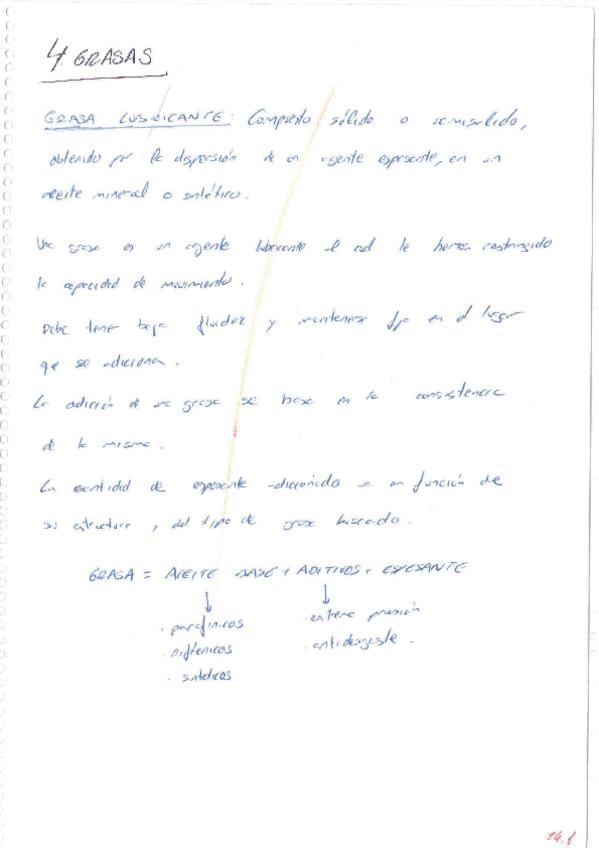 4. GRASAS
GRASA LUBRICANTE: Compuesto sólido o semisólido,
obtenido por la dispersión de un agente espesante, en un
aceite mineral o sintético.
Una grasa es un agente lubricante el cual le hemos restringido
la capacidad de movimiento.
Debe tener baja fluidez y mantenerse fijo en el lugar
que se adiciona.
La adición de una grasa se basa en la consistencia
de la misma.
La cantidad de espesante adicionado va en función de
su estructura y del tipo de grasa buscado.
GRASA = ACEITE BASE + ADITIVOS + ESPESANTE
· parafínicos · extrema presión
· nafténicos · antidesgaste.
· sintéticos
14.1